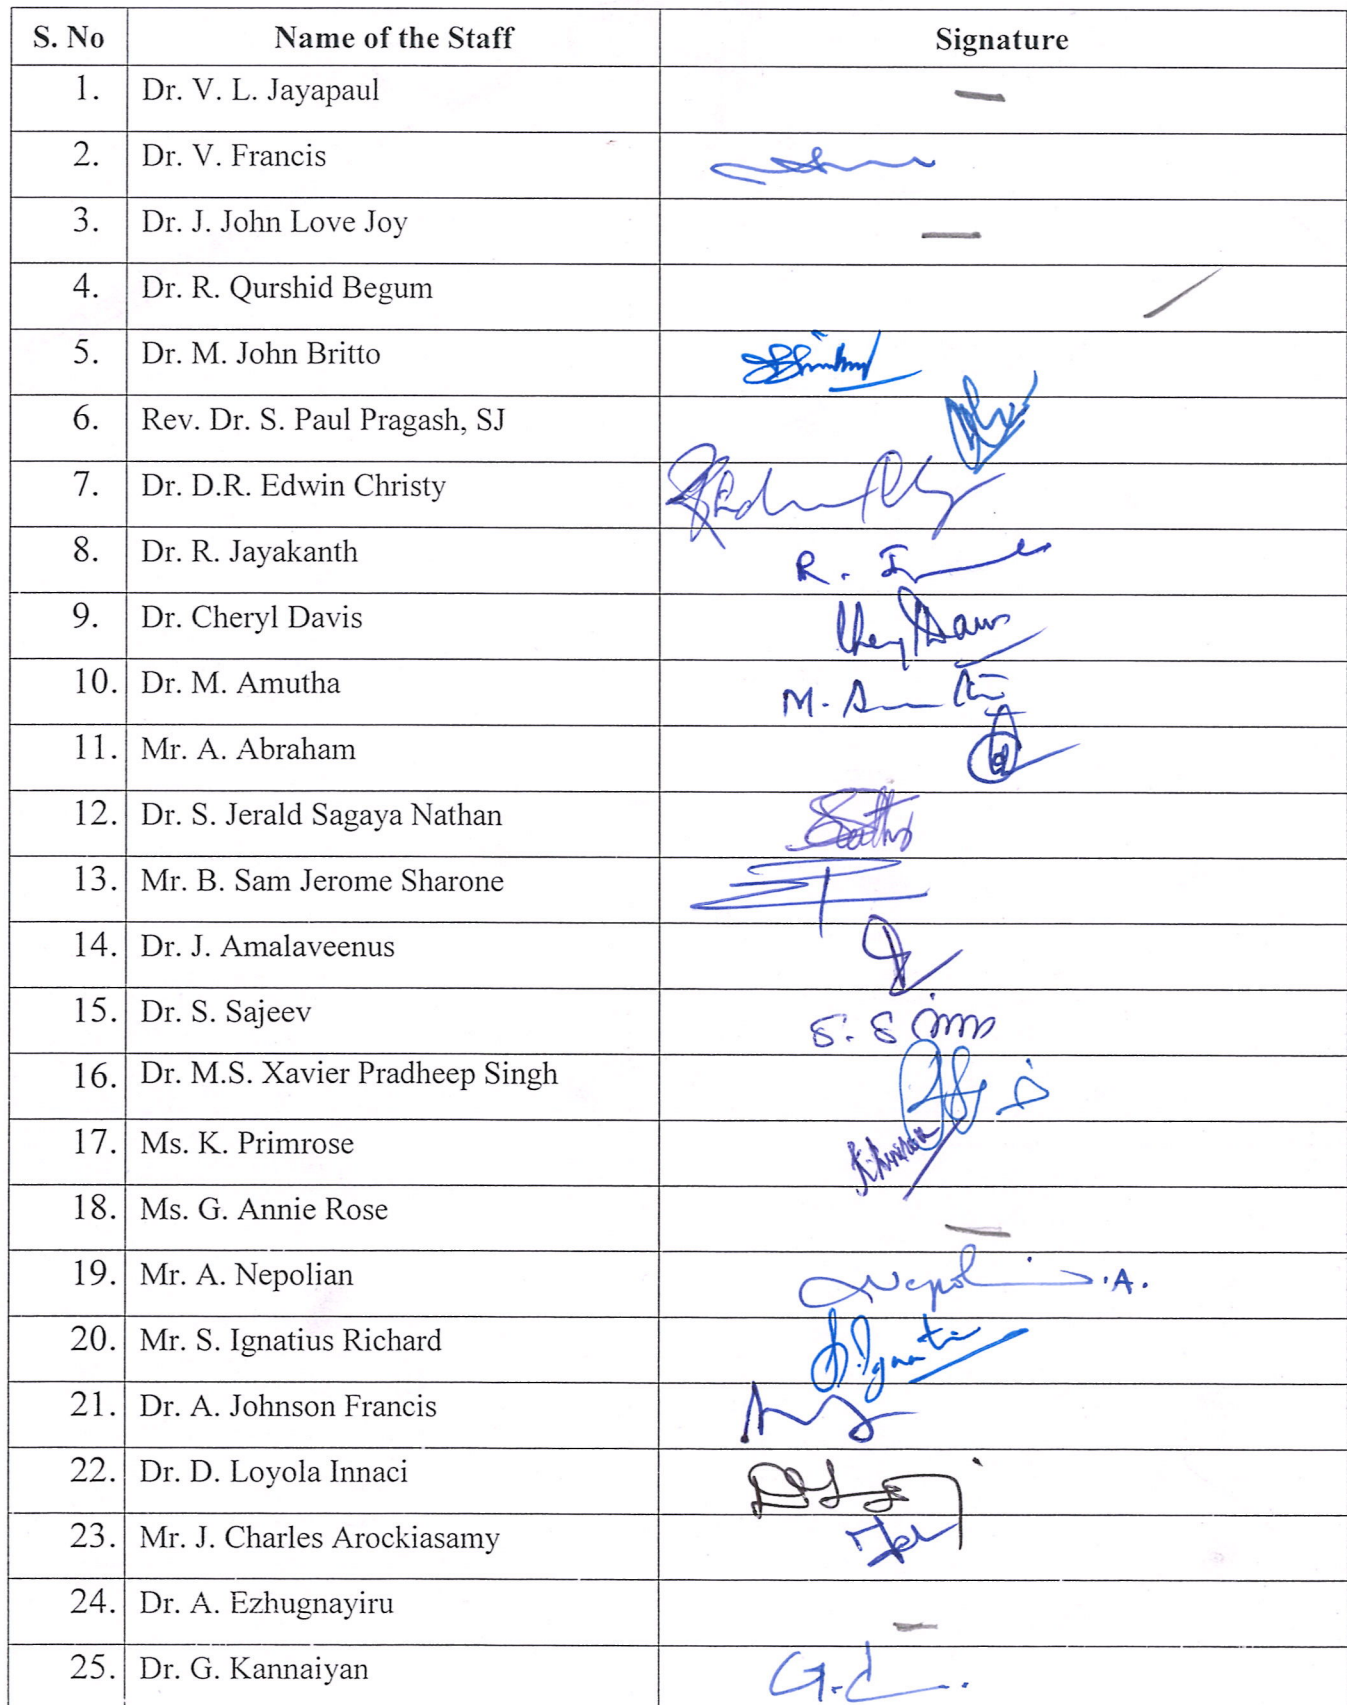 S. No Name of the Staff Signature
1. Dr. V. L. Jayapaul —
2. Dr. V. Francis
3. Dr. J. John Love Joy —
4. Dr. R. Qurshid Begum /
5. Dr. M. John Britto
6. Rev. Dr. S. Paul Pragash, SJ
7. Dr. D.R. Edwin Christy
8. Dr. R. Jayakanth R.
9. Dr. Cheryl Davis
10. Dr. M. Amutha M.
11. Mr. A. Abraham
12. Dr. S. Jerald Sagaya Nathan
13. Mr. B. Sam Jerome Sharone
14. Dr. J. Amalaveenus
15. Dr. S. Sajeev
16. Dr. M.S. Xavier Pradheep Singh
17. Ms. K. Primrose
18. Ms. G. Annie Rose —
19. Mr. A. Nepolian .A.
20. Mr. S. Ignatius Richard
21. Dr. A. Johnson Francis
22. Dr. D. Loyola Innaci
23. Mr. J. Charles Arockiasamy
24. Dr. A. Ezhugnayiru —
25. Dr. G. Kannaiyan